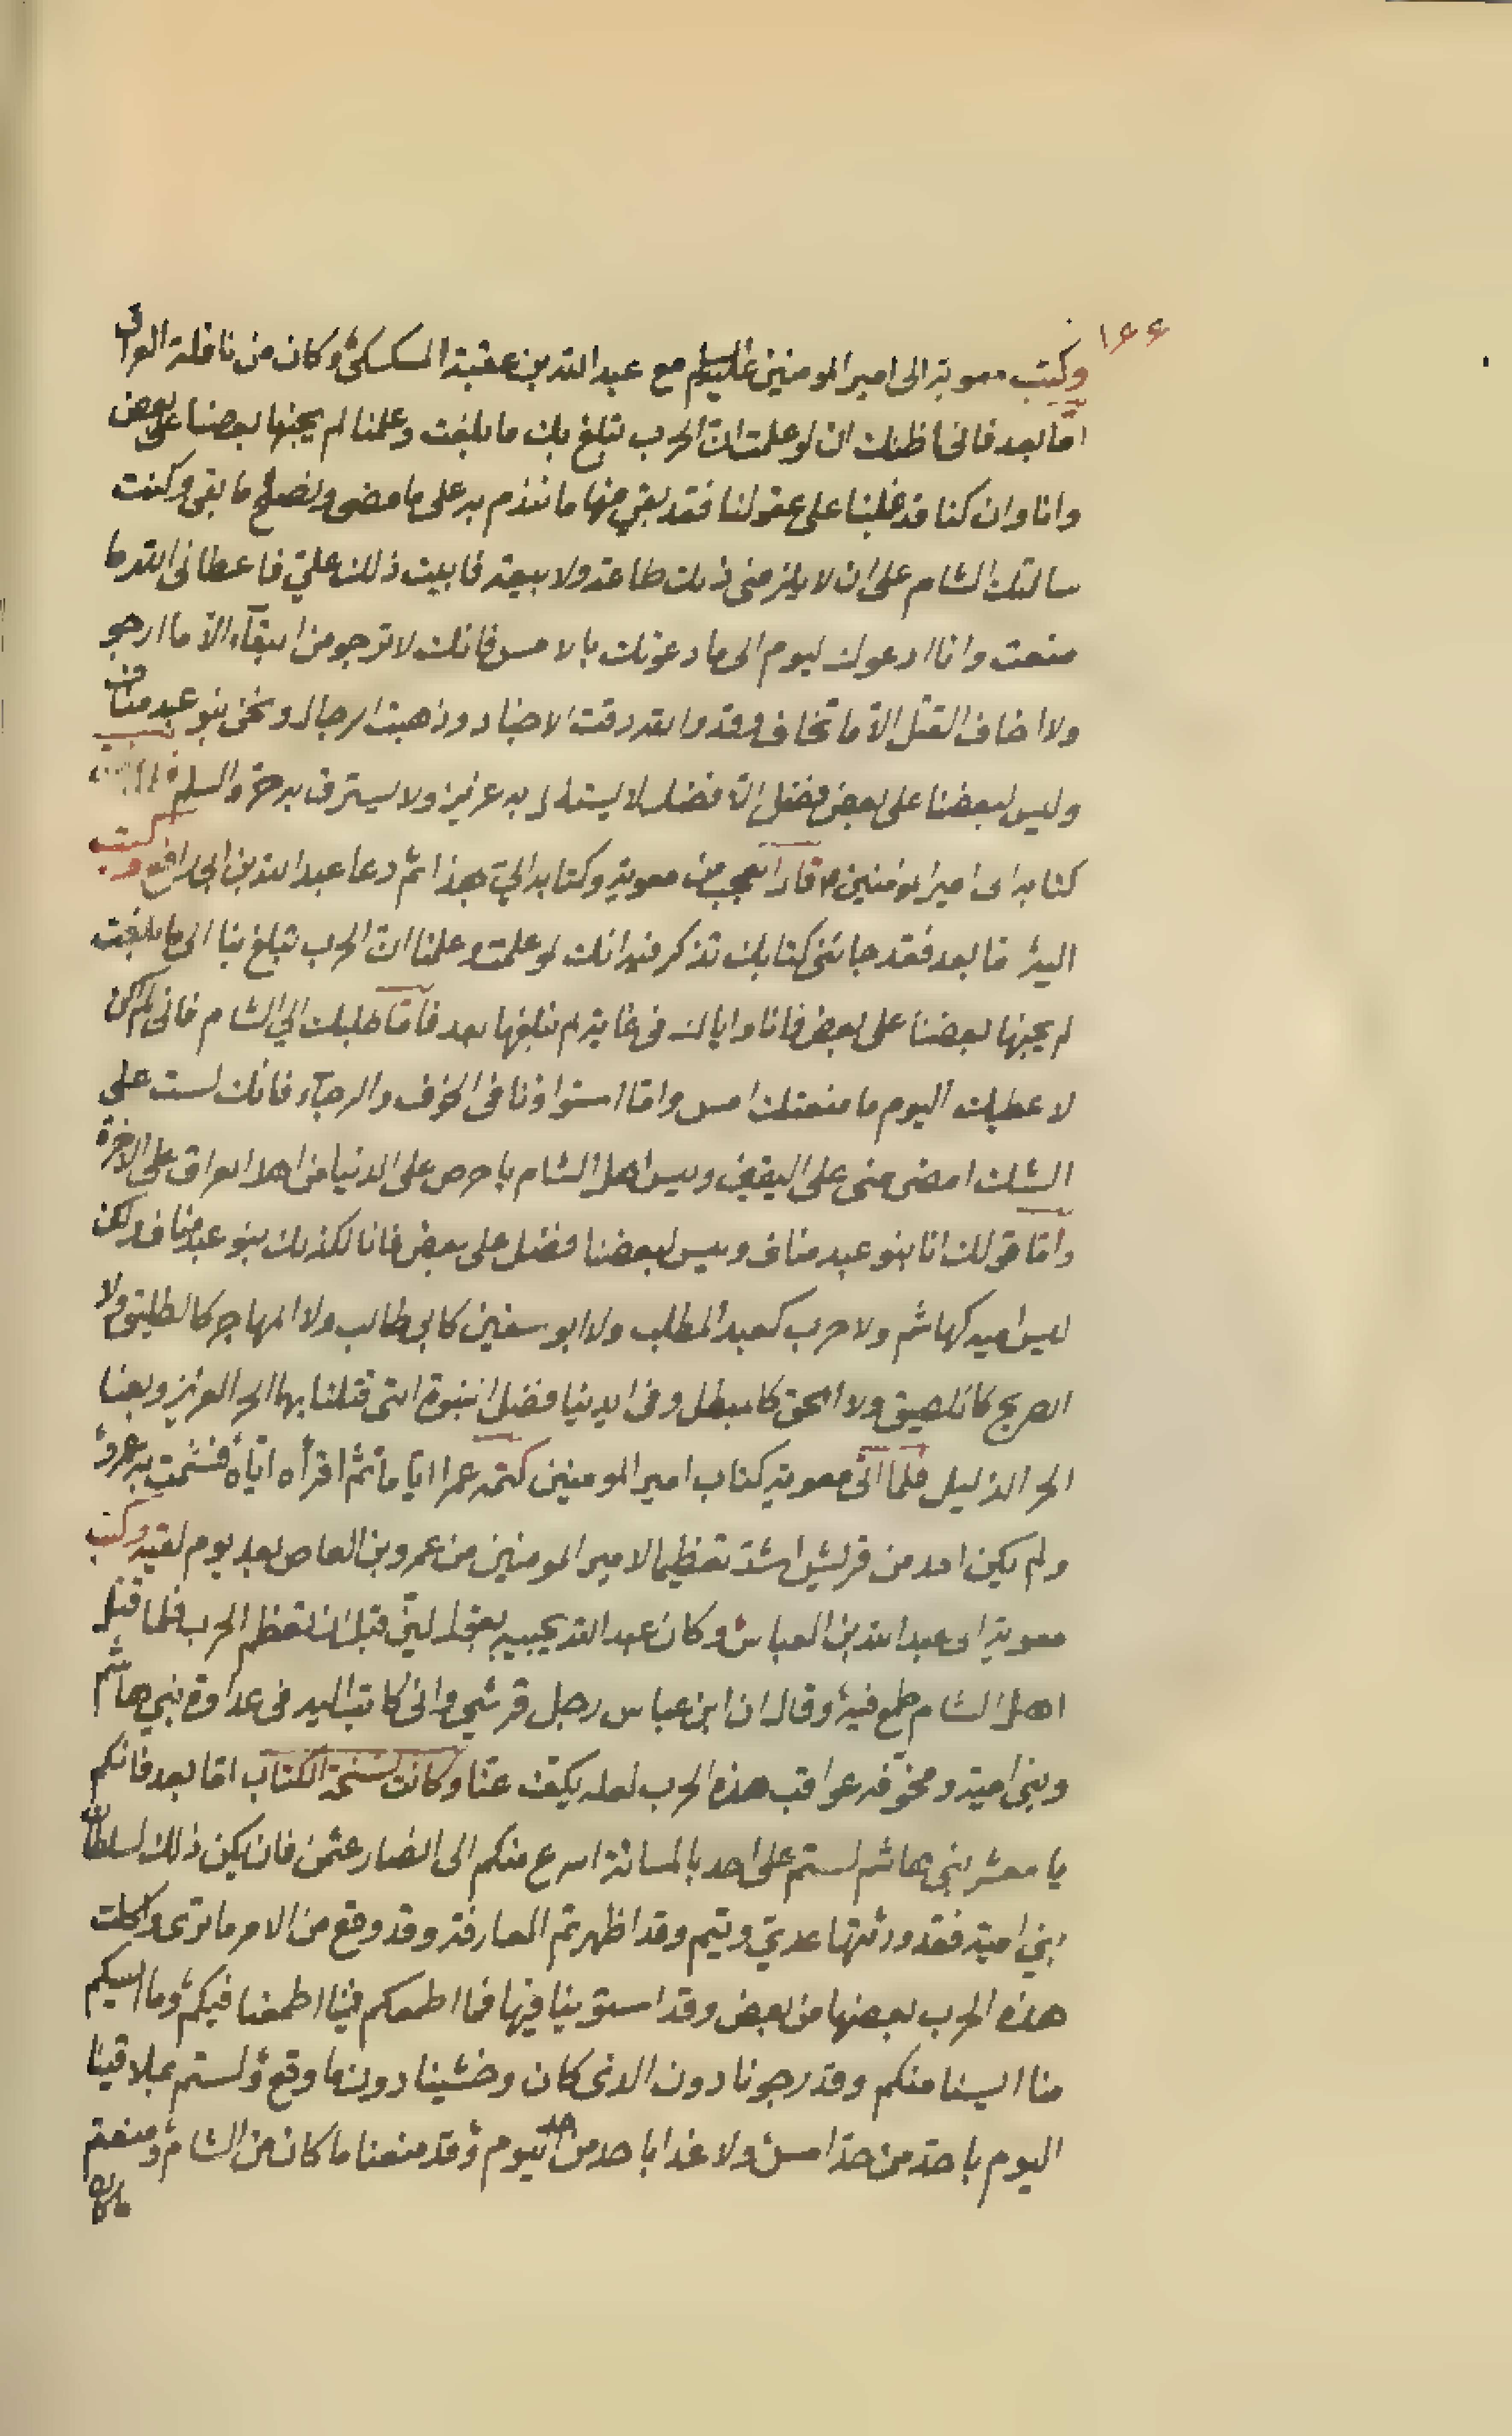 ١٤٤
وكتب معوية الى امير المومنين عليه السلم مع عبد الله بن عقبة السكسكي وكان من ناقلة العراق
اما بعد فانى اظنك ان لو علمت ان الحرب تبلغ بك ما بلغت وعلمنا لم يجنها بعضنا على بعض
وانا وان كنا قد غلبنا على عقولنا فقد بقي منها ما نندم به على ما مضى ونصلح ما بقى وكنت
سالتك الشام على ان لا يلزمنى ذلك طاعة ولا بيعة فابيت ذلك علي فاعطانى الله ما
منعت وانا ادعوك ليوم الى ما دعوتك بالامس فانك لا ترجو من البقآء الا ما ارجو
ولا اخاف القتل الا ما تخاف وقد والله رقت الاجناد وذهبت الرجال ونحن بنو عبد مناف
وليس لبعضنا على بعض فضل الا فضل لا يستدل به عزيز ولا يسترق به حر والسلم
كتابه الى امير المومنين قال العجب من معوية وكتابه الي هذا ثم دعا عبد الله بن ابى رافع وكتب
اليه اما بعد فقد جائنى كتابك تذكر فيه انك لو علمت وعلمنا ان الحرب تبلغ بنا الى ما بلغت
لم يجنها بعضنا على بعض فانا واياك فى غاية لم نبلغها بعد فاما طلبك الي الشام فانى لم اكن
لاعطيك اليوم ما منعتك امس واما استواؤنا فى الخوف والرجآء فانك لست على
الشك امضى منى على اليقين وليس اهل الشام باحرص على الدنيا من اهل العراق على الاخرة
واما قولك انا بنو عبد مناف وليس لبعضنا فضل على بعض فانا لكذلك بنو عبد مناف ولكن
ليس امية كهاشم ولا حرب كعبد المطلب ولا ابو سفين كابى طالب ولا المهاجر كالطليق ولا
الصريح كاللصيق ولا المحق كالمبطل وفى ايدينا فضل النبوة التى قتلنا بها الحر العزيز وبعنا
الحر الذليل فلما اتى معوية كتاب امير المومنين كتمه عمرا اياما ثم اقرأه اياه فشمت به عمرو
ولم يكن احد من قريش اشد تعظيما لامير المومنين من عمرو بن العاص بعد يوم لقيه وكتب
معوية الى عبد الله بن العباس وكان عبد الله يجيبه بقول لين قبل ان تعظم الحرب فلما قتل
اهل الشام طمع فيه وقال ان ابن عباس رجل قرشي وانى كاتب اليه فى عداوة بني هاشم
وبنى امية ومخوفه عواقب هذه الحرب لعله يكف عنا وكانت نسخة الكتاب اما بعد فانكم
يا معشر بنى هاشم لستم على احد بالمسائة اسرع منكم الى انصار عثمن فان يكن ذلك لسلطان
بني امية فقد ورثتها عدي وتيم وقد اظهرتم المعارفة وقد وقع من الامر ما ترى واكلت
هذه الحرب بعضها من بعض وقد استوينا فيها فما اطمعكم فينا اطمعنا فيكم وما ايسكم
منا ايسنا منكم وقد رجونا دون الذى كان وخشينا دون ما وقع ولستم بملاقينا
اليوم باحد من حد امس ولا غدا باحد من حد اليوم وقد منعنا ما كان من الشام ومنعتم
ما كان